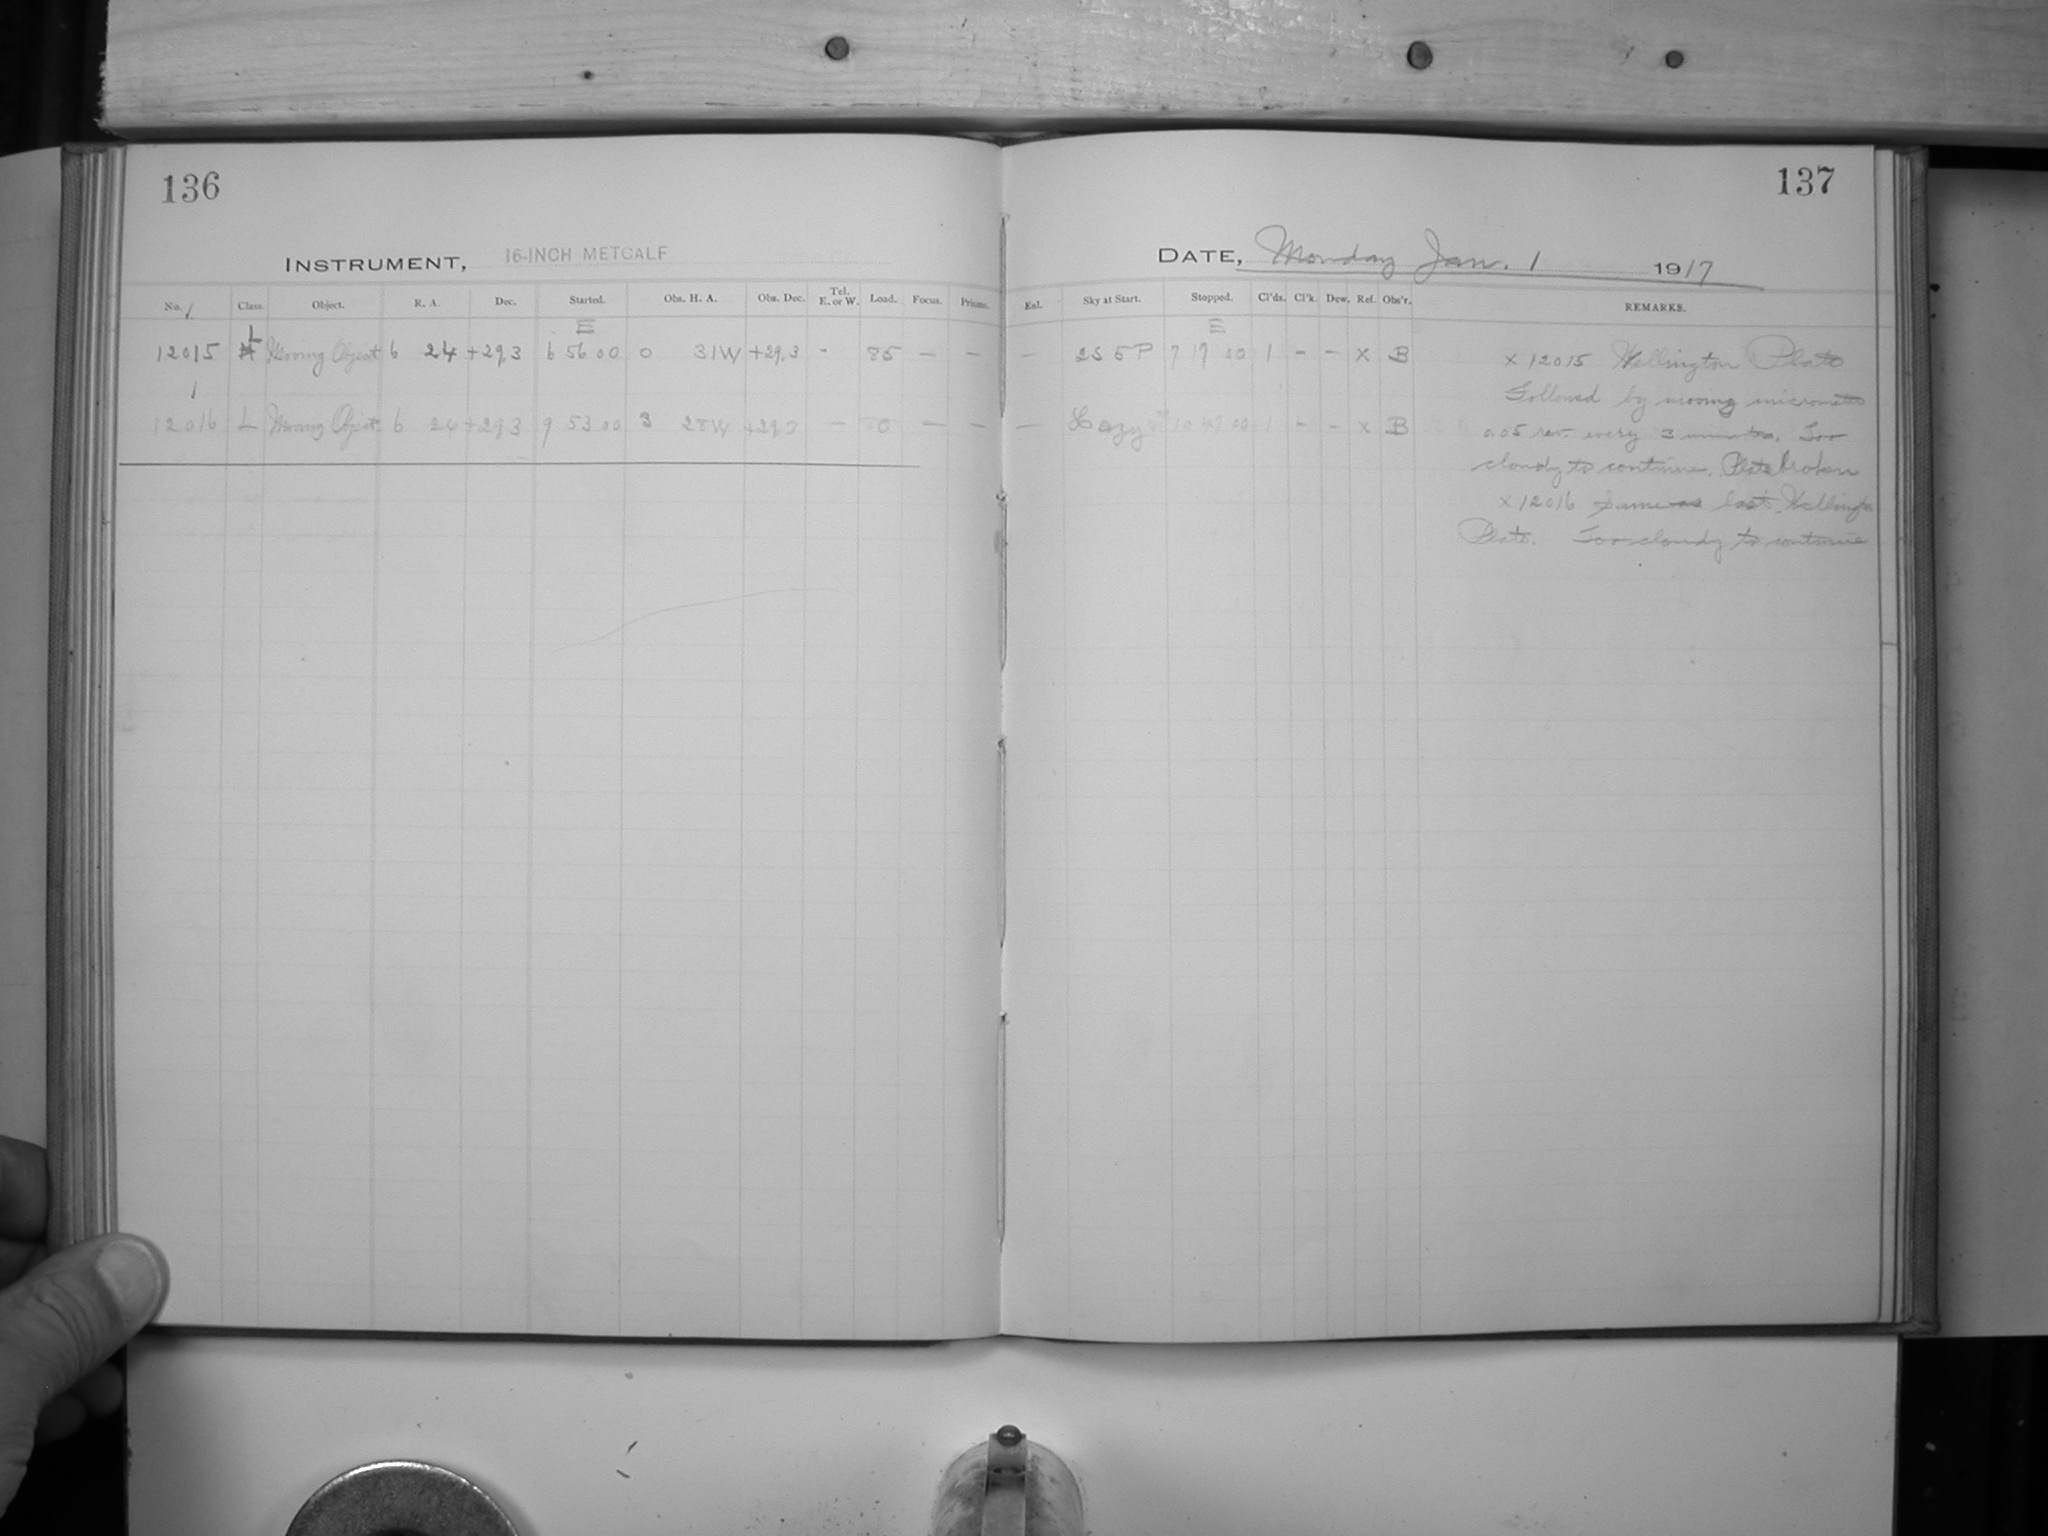 136
INSTRUMENT, 16-INCH METCALF
No. Class. Object. R. A. Dec. Started. Obs. H. A. Obs. Dec. Tel. E. or W. Load. Focus. Prisms.
E
12015 L Moving Object 6 24 +29,3 6 56 00 0 31W +29,3 - 85 - -
12016 L Moving Object 6 24 +29,3 9 53 00 3 28W +29,3 - 80 - -
137
DATE, Monday Jan. 1 1917
Enl. Sky at Start. Stopped. Cl'ds. Cl'k. Dew. Ref. Obs'r. REMARKS.
E
- 2S 5P 7 19 00 1 - - x B
- Hazy 10 47 00 1 - - x B
x 12015 Wellington Plate
Followed by moving micrometer
0.05 rev. every 3 minutes. Too
cloudy to continue. Plate broken
x 12016 Same as last. Wellington
Plate. Too cloudy to continue